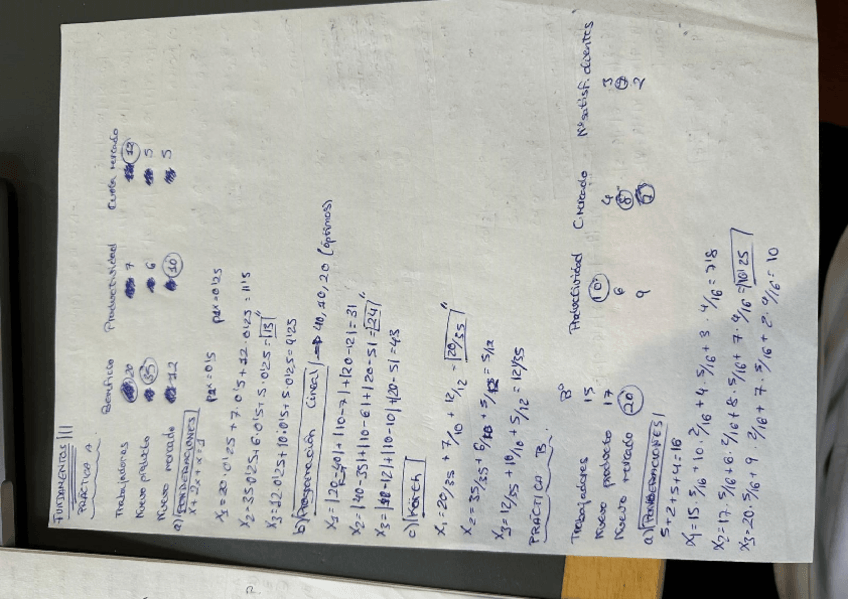 FUNDAMENTOS III
PRÁCTICA A
Beneficio Productividad Cuota mercado
Trabajadores 20 7 12
Nuevo producto 35 6 5
Nuevo mercado 12 10 5
a) PONDERACIONES
x + 2x + x = 1 px = 0'5 px = 0'25
X1 = 20·0'25 + 7·0'5 + 12·0'25 = 11'5
X2 = 35·0'25 + 6·0'5 + 5·0'25 = 13"
X3 = 12·0'25 + 10·0'5 + 5·0'25 = 9'25
b) Programación lineal → 40, 10, 20 (óptimos)
X1 = |20-40| + |10-7| + |20-12| = 31
X2 = |40-35| + |10-6| + |20-5| = 24"
X3 = |-12| + |10-10| + |20-5| = 43
c)
X1 = 20/35 + 7/10 + 12/12 = 20/35"
X2 = 35/35 + 6/10 + 5/12 = 5/12
X3 = 12/35 + 10/10 + 5/12 = 12/35
PRÁCTICA B.
Bº Productividad C. mercado Nº satisf. clientes
Trabajadores 15 10 4 3
Nuevo producto 17 6 8 7
Nuevo mercado 20 9 7 2
a) PONDERACIONES
5+2+5+4=16
X1 = 15·5/16 + 10·2/16 + 4·5/16 + 3·4/16 = 7'8
X2 = 17·5/16 + 6·2/16 + 8·5/16 + 7·4/16 = 10'25"
X3 = 20·5/16 + 9·2/16 + 7·5/16 + 2·4/16 = 10